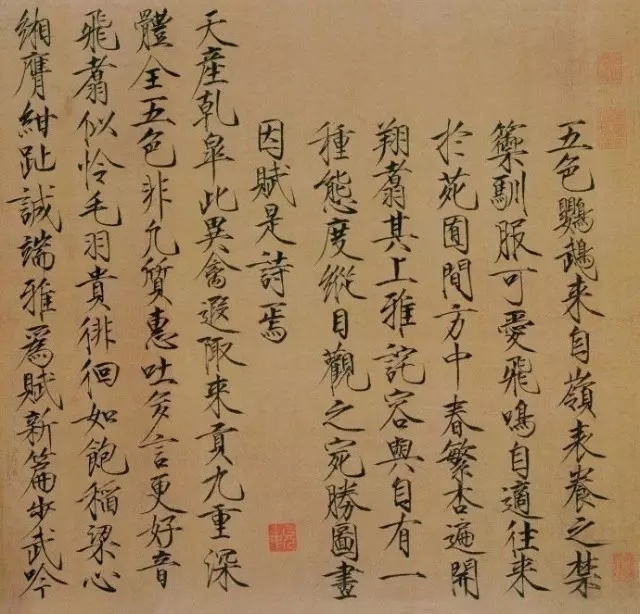 五色鸚鵡来自嶺表養之禁
籞馴服可愛飛鳴自適往来
於苑囿間方中春繁杏遍開
翔翥其上雅詫容與自有一
種態度縱目觀之宛勝圖畫
因賦是詩焉
天産乾皐此異禽遐陬来貢九重深
體全五色非凡質惠吐多言更好音
飛翥似憐毛羽貴徘徊如飽稻粱心
緗膺紺趾誠端雅爲賦新篇步武吟